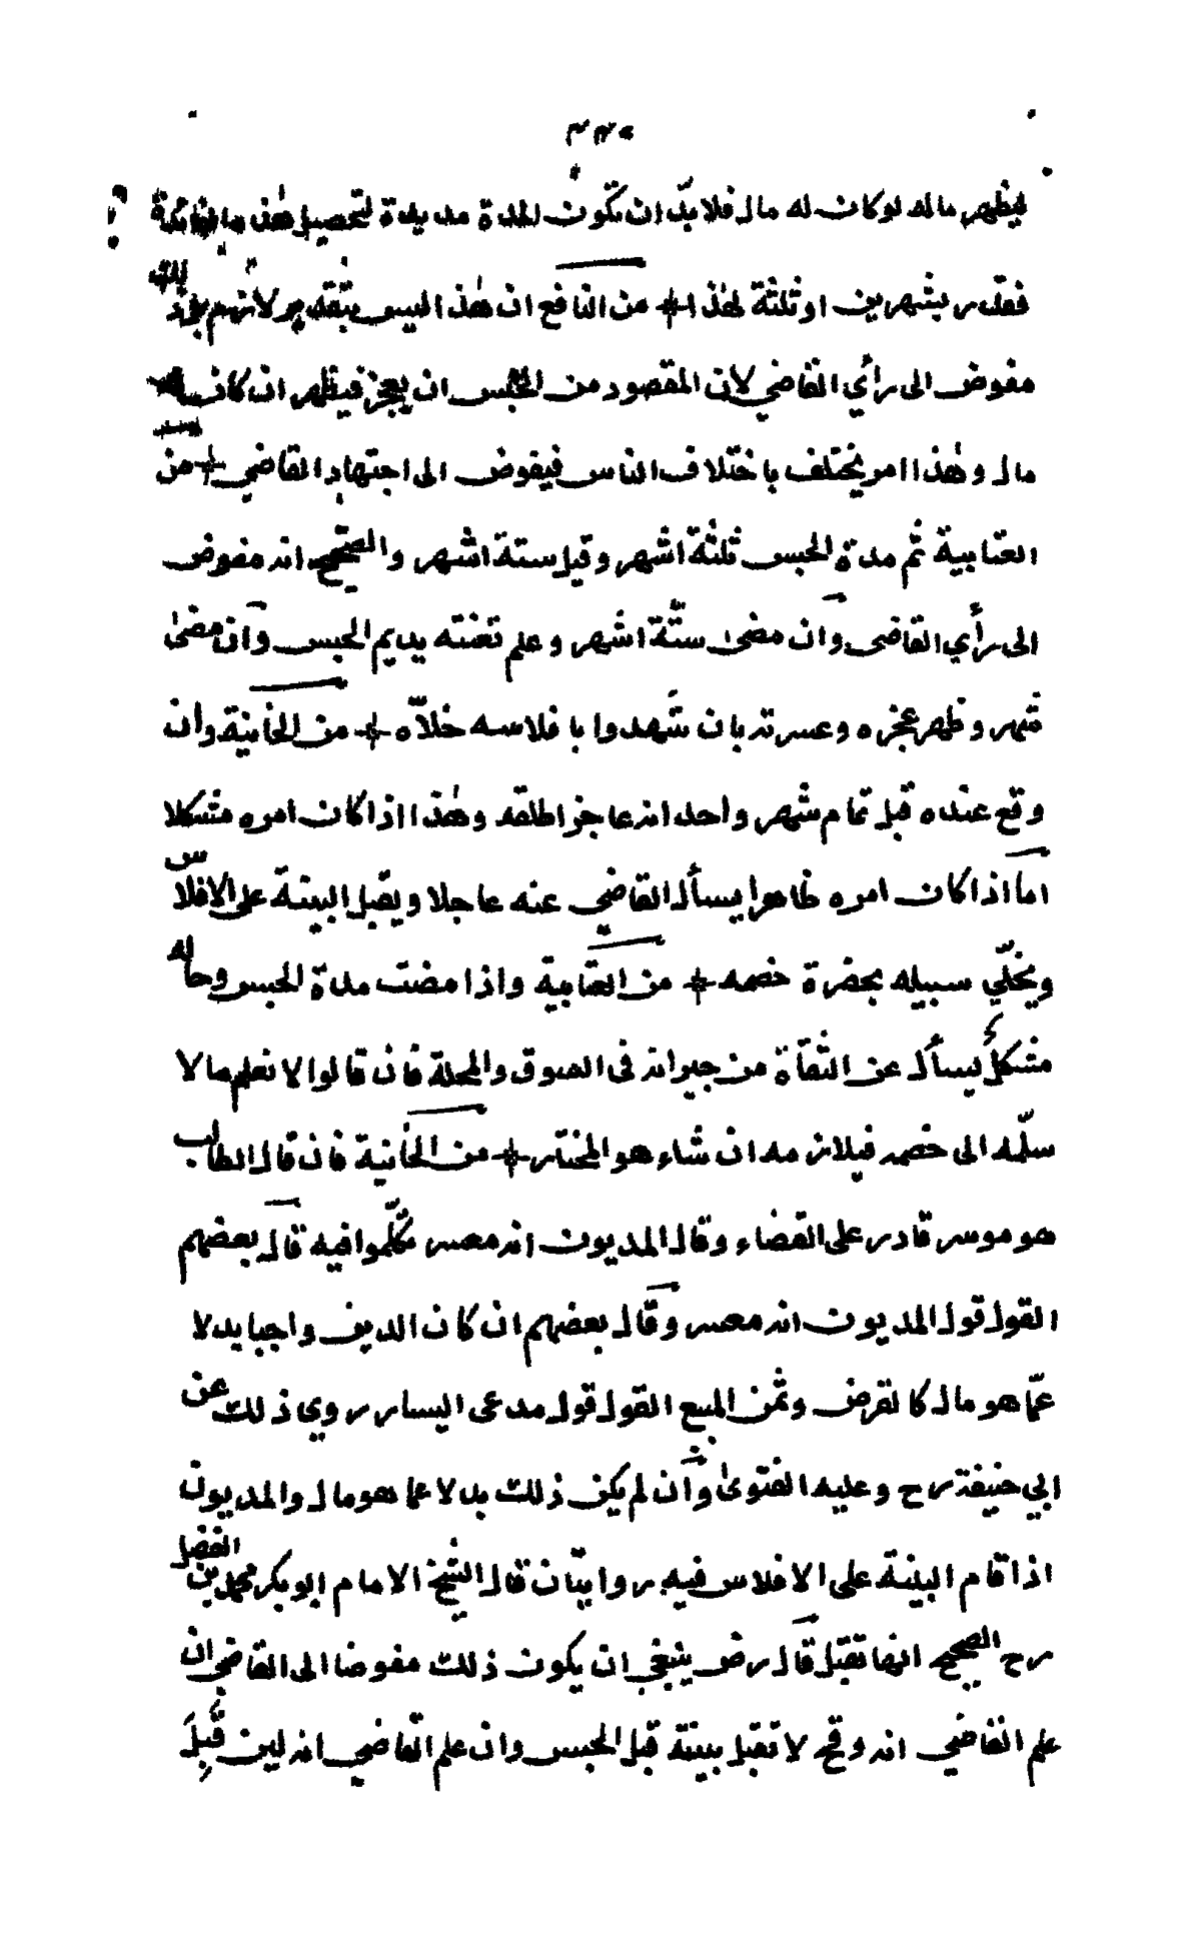 ليظهر ماله لو كان له مال فلا بدّ ان تكون المدة مديدة لتحصيل هذه الفائدة
فقدر بشهرين او ثلثة لهذا من النافع ان هذا ليس بتقدير لازم بل
مفوض الى رأي القاضي لان المقصود من الحبس ان يعجز فيظهر ان كان له
مال وهذا امر يختلف باختلاف الناس فيفوض الى اجتهاد القاضي من
العتابية ثم مدة الحبس ثلثة اشهر وقيل ستة اشهر والصحيح انه مفوض
الى رأي القاضي وان مضى ستّة اشهر وعلم تعنته يديم الحبس وان مضىٰ
شهر وظهر عجزه وعسرته بان شهدوا بافلاسه خلاّه من الخانية وان
وقع عنده قبل تمام شهر واحد انه عاجز اطلقه وهذا اذا كان امره مشكلا
اما اذا كان امره ظاهرا يسأل القاضي عنه عاجلا ويقبل البينة على الافلاس
ويخلّي سبيله بحضرة خصمه من العتابية واذا مضت مدة الحبس وحاله
مشكل يسأل عن الثقاة من جيرانه فى السوق والمحلة فان قالوا لا نعلم مالا
سلّمه الى خصمه فيلازمه ان شاء هو المختار من الخانية فان قال الطالب
هو موسر قادر على القضاء وقال المديون انه معسر تكلّموا فيه قال بعضهم
القول قول المديون انه معسر وقال بعضهم ان كان الدين واجبا بدلا
عمّا هو مال كالقرض وثمن المبيع القول قول مدعى اليسار روي ذلك عن
ابي حنيفة رح وعليه الفتوىٰ وان لم يكن ذلك بدلا عما هو مال والمديون
اذا اقام البينة على الافلاس فيه روايتان قال الشيخ الامام ابو بكر محمد بن الفضل
رح الصحيح انها تقبل قال رض ينبغي ان يكون ذلك مفوضا الى القاضي ان
علم القاضي انه وقح لا تقبل بينته قبل الحبس وان علم القاضي انه لين قُبِلَ